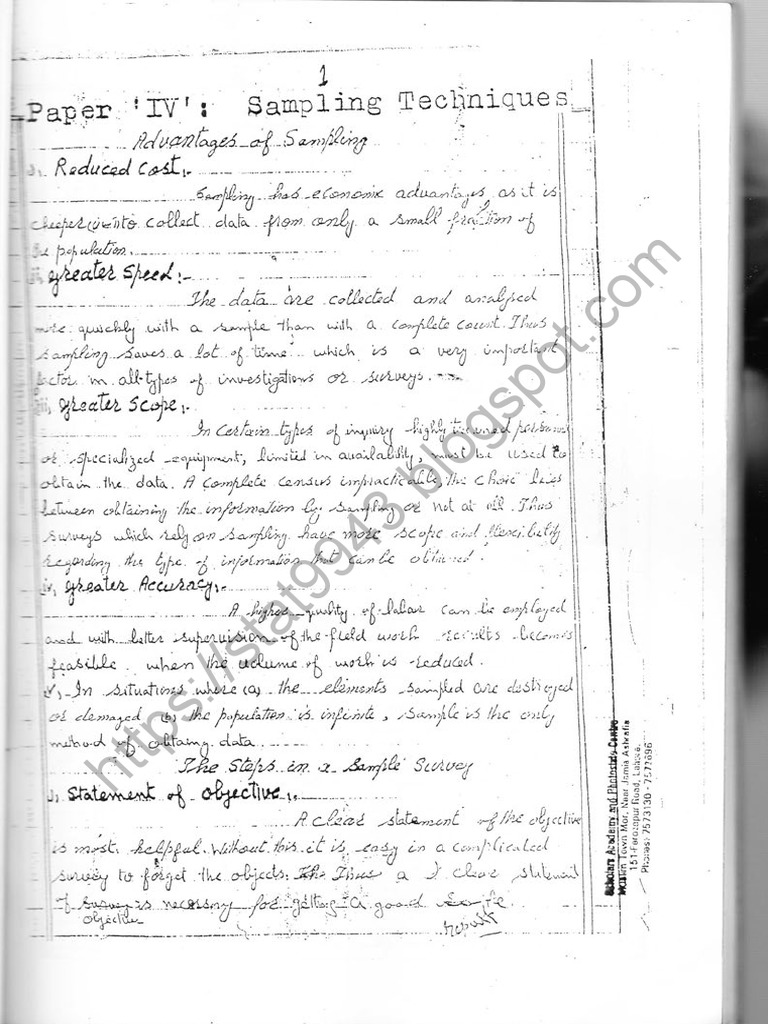 1
Paper 'IV': Sampling Techniques
Advantages of Sampling
i, Reduced Cost:-
Sampling has economic advantages, as it is
cheeper to collect data from only a small fraction of
the population.
ii, Greater Speed:-
The data are collected and analysed
more quickly with a sample than with a complete count. Thus
sampling saves a lot of time which is a very important
factor in all types of investigations or surveys.
iii, Greater Scope:-
In certain types of inquiry highly
or specialized equipment, limited in availability, must be used to
obtain the data. A complete census impracticable, the choice lies
between obtaining the information by sampling or not at all. Thus
surveys which rely on sampling have more scope and flexibility
regarding the type of information that can be obtained.
iv, Greater Accuracy:-
A higher quality of labar can be employed
and with better supervision of the field work results becomes
feasible when the volume of work is reduced.
v, In situations where (a) the elements sampled are destroyed
or demaged (b) the population is infinite, sample is the only
method of obtaing data.
The Steps in a Sample Survey
i, Statement of Objective:-
A clear statement of the objective
is most helpful. Without this it is easy in a complicated
survey to forget the objects. Thus a clear statement
of survey is necessary for getting a good
objective
result
https://stat9943.blogspot.com
Scholars Academy and Photostate Centre
Muslim Town Mor, Near Jamia Ashrafia
151-Ferozepur Road, Lahore.
Phones: 7573130 - 7572696